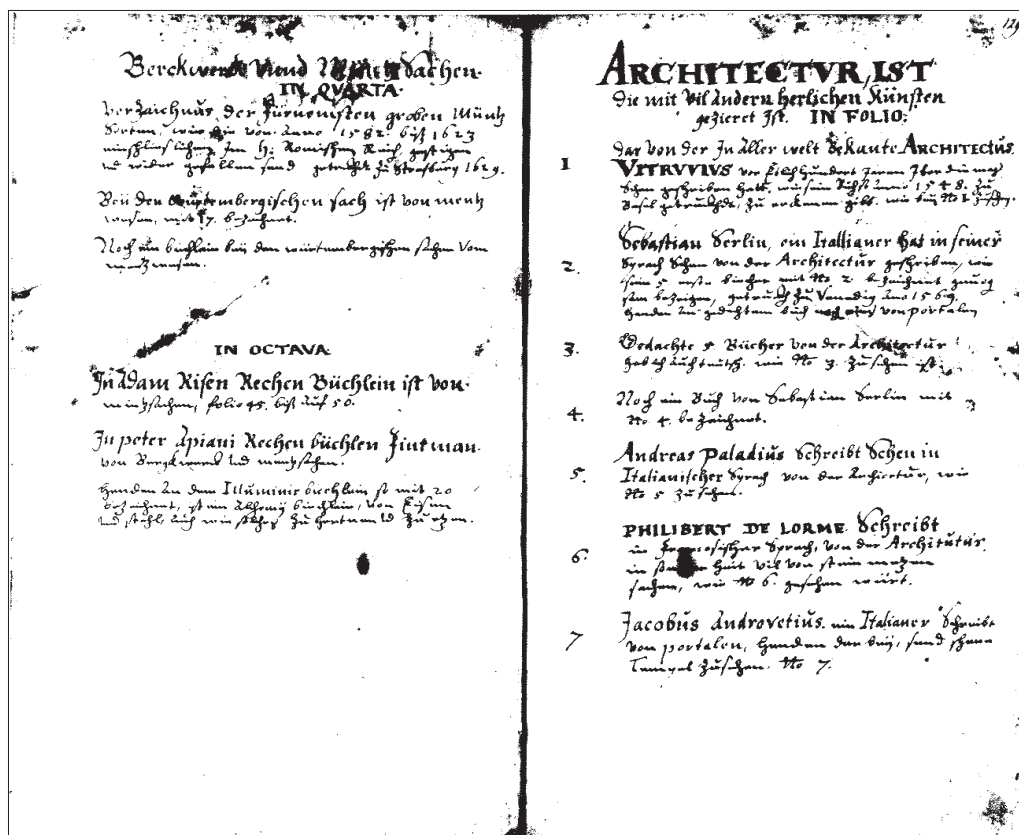 Berckwerck Vnnd Müntz Sachen.
IN QVARTA.
Verzaichnus der Fürnemsten groben Müntz
Sorten, wie von Anno 1582 bisz 1623
Im H: Römischen Reich, gestigen
vnd wider gefallen sand getruckt zu Strasburg 1629.
Beÿ den Würtembergischen sach ist von mentz
wesen, mit 7. bezaichnet.
Noch ein büchlein beÿ den würtembergischen sachen Vom
mentzwesen.
IN OCTAVA
In Adam Risen Rechen Büchlein ist von
mintzsachen, folio 45. bisz auf 50.
In peter Apiani Rechen büchlen Fint man.
von Bergkwerck vnd mentzsachen.
handen An dem Illuminir buechlein so mit 20
bezaichnet, ist ein Alchemÿ büechlein, von Eisen
vnd stahl, auch wie solches zu hertten vnd zu etzen.
129
ARCHITECTVR, IST
die mit vil Andern herlichen Künsten
gezieret Ist. IN FOLIO:
1 das von der In Aller welt Bekante ARCHITECTUS
VITRVVIVS vor Jaren
Schen geschriben hatt, wie sein Anno 1548. zu
Basel getruckhdt, zu erkennen gibt. wie beÿ No 1 zusehen.
Sebastian Serlin, ein Itallianer hat in seiner
2. Sprach Schen von der Architectur geschriben, wie
sein 5 erste biecher mit No 2. bezaichnet genug
sam bezeigen, getruckt zu Venedig Ano 1569.
handen An gedachtem buch noch von portalen
3. Gedachte 5 Bücher von der Architectur
hab ich Auch teutsch. wie No 3. zu sehen ist.
Noch ein Buch von Sebastian Serlin mit
4. No 4. bezaichnet.
Andreas Paladius Schreibt Schen in
5. Italianischer Sprach von der Archictur, wie
No 5 zu sehen.
PHILIBERT DE LORME Schreibt
6. in Francosischer Sprach, von der Architutur,
in heit vil von stain metzen
sachen, wie No 6. gesehen würt.
Jacobus Androvetius. ein Italianer Schreibt
7 von portalen, handen dar beÿ, sand schene
Tempel zu sehen. No 7.